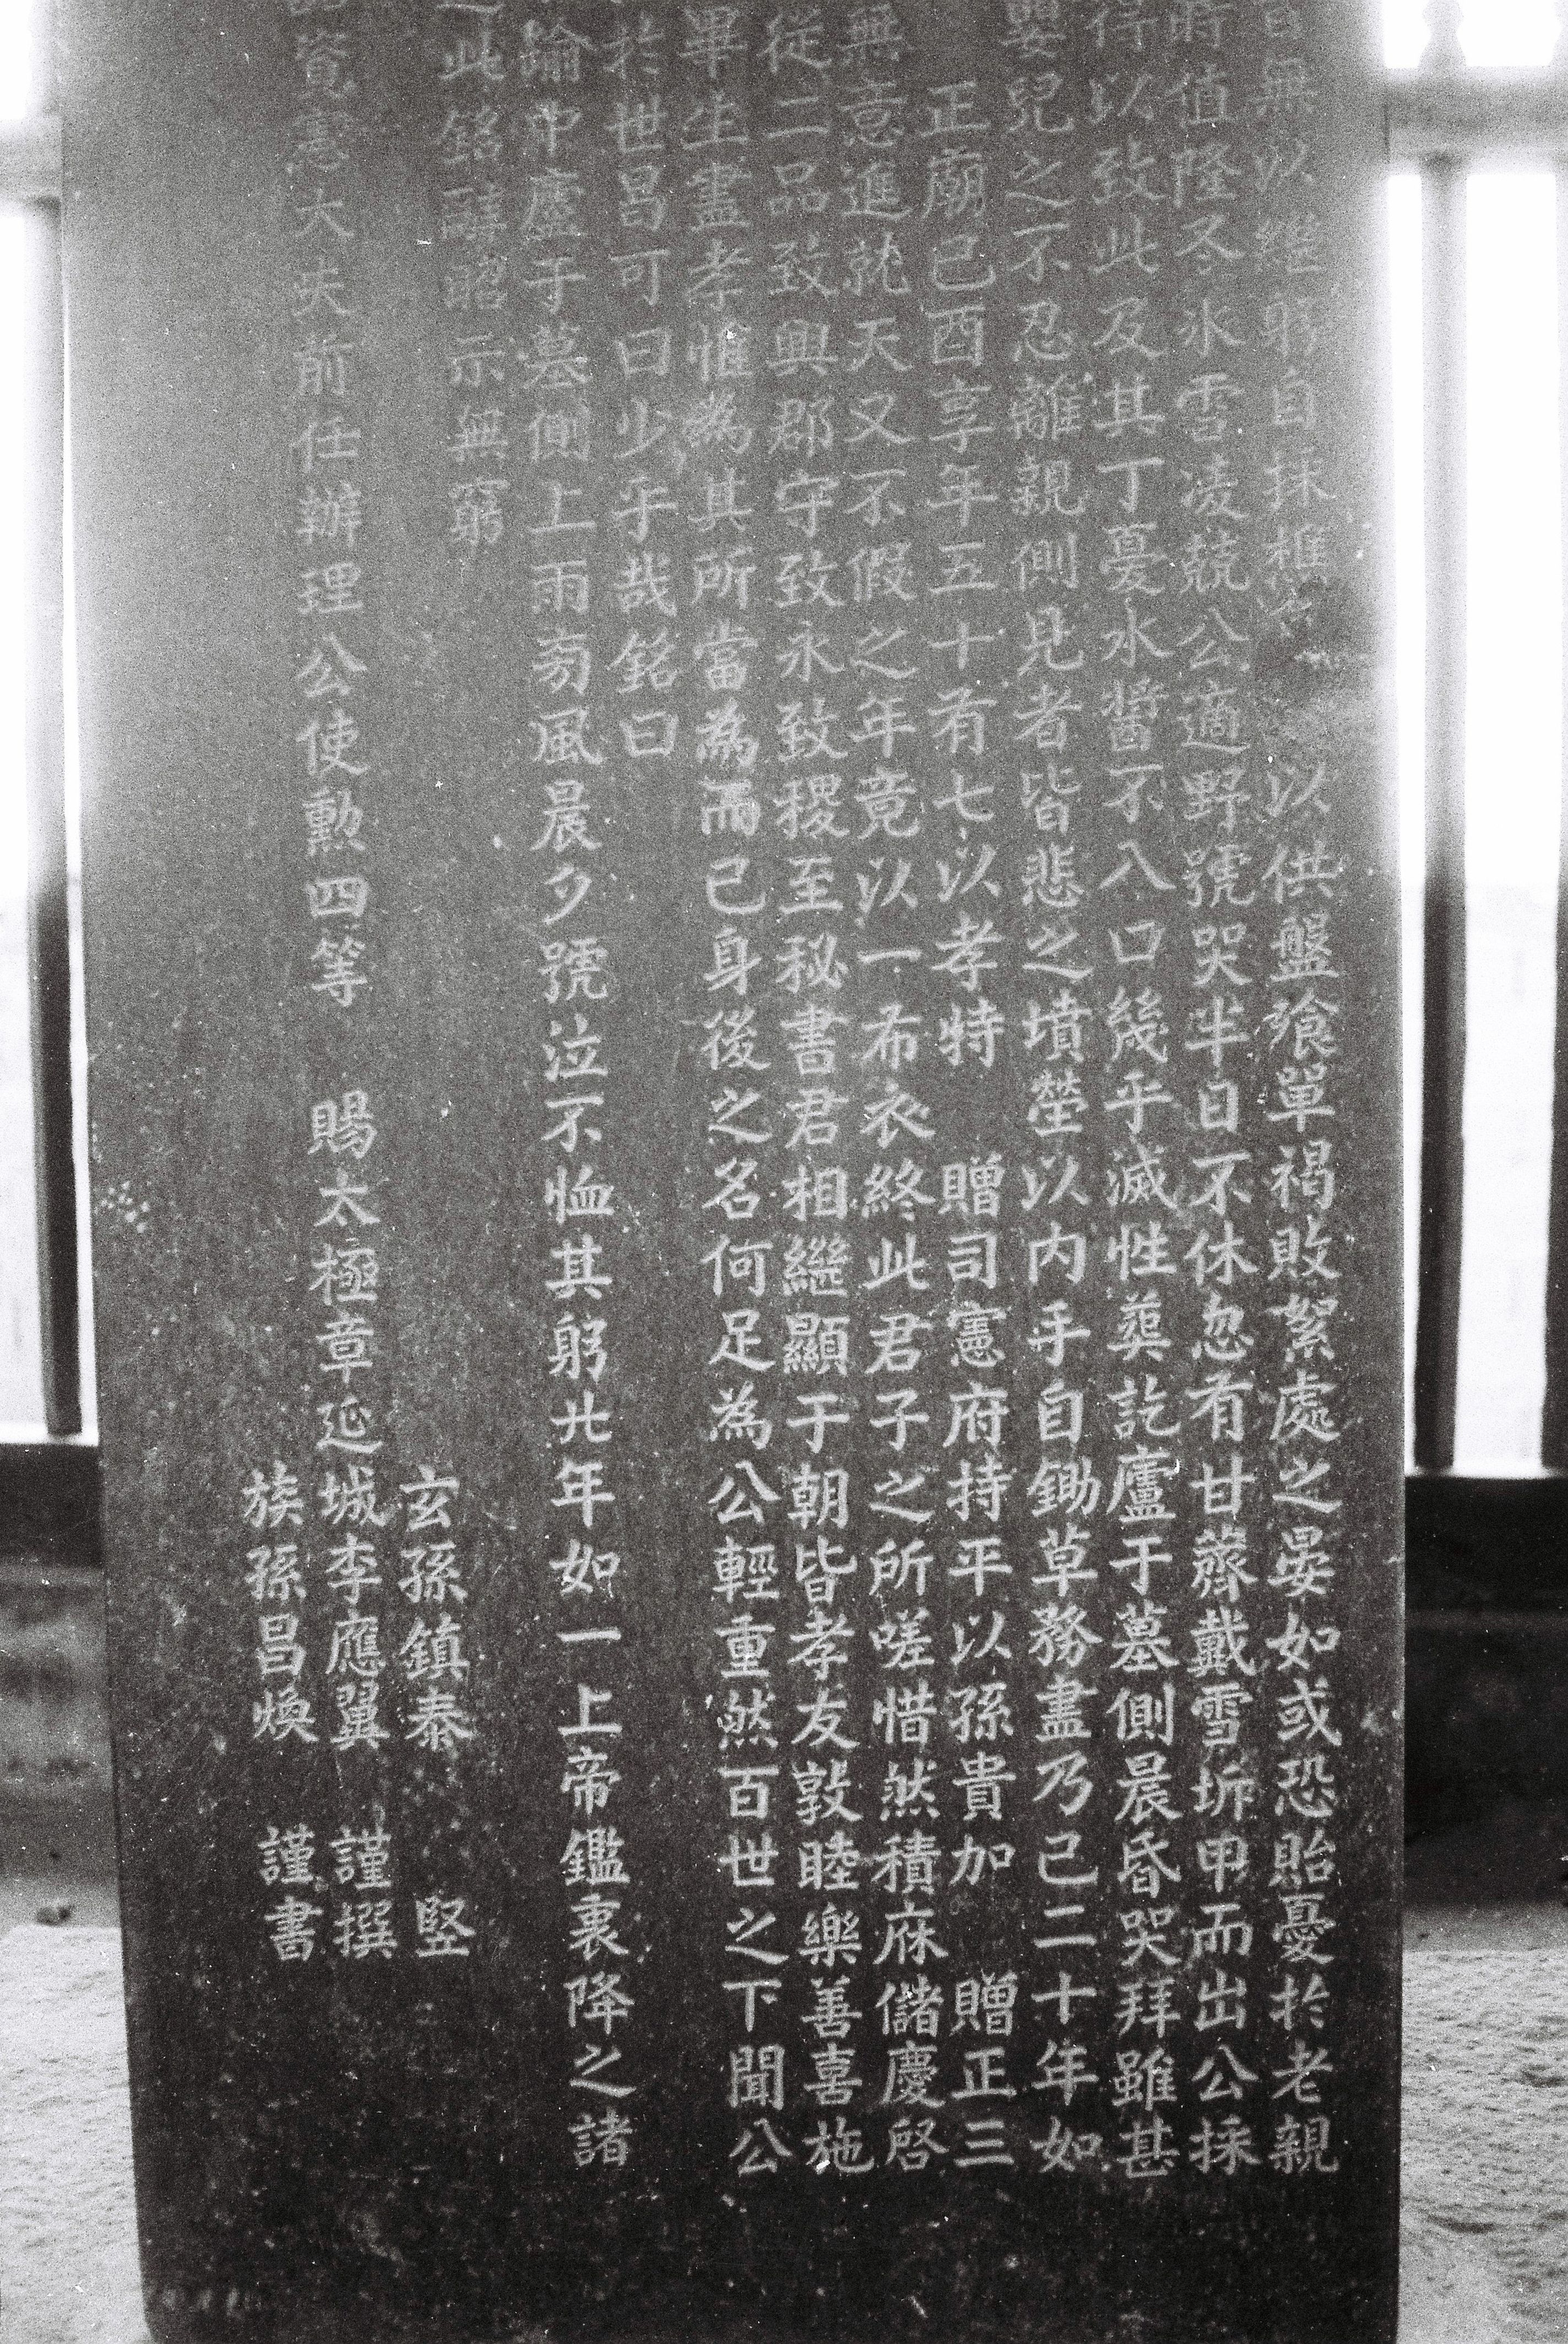 無以繼躬自採樵以供盤飧單褐敗絮處之晏如或恐貽憂於老親
時值隆冬氷雪凌兢公適野號哭半日不休忽有甘蕨戴雪坼甲而出公採
得以致此及其丁憂水醬不入口幾乎滅性葬訖廬于墓側晨昏哭拜雖甚
嬰兒之不忍離親側見者皆悲之墳塋以內手自鋤草務盡乃已二十年如
正廟己酉享年五十有七以孝特 贈司憲府持平以孫貴加 贈正三
無意進就天又不假之年竟以一布衣終此君子之所嗟惜然積庥儲慶啓
從二品致興郡守致永致稷至秘書君相繼顯于朝皆孝友敦睦樂善喜施
畢生盡孝惟為其所當為而已身後之名何足為公輕重然百世之下聞公
於世昌可曰少乎哉銘曰
帛廬于墓側上雨旁風晨夕號泣不恤其躬廿年如一上帝鑑衷降之諸
此銘辭昭示無窮
玄孫鎮泰 竪
憲大夫前任辦理公使勳四等 賜太極章延城李應翼 謹撰
族孫昌煥 謹書